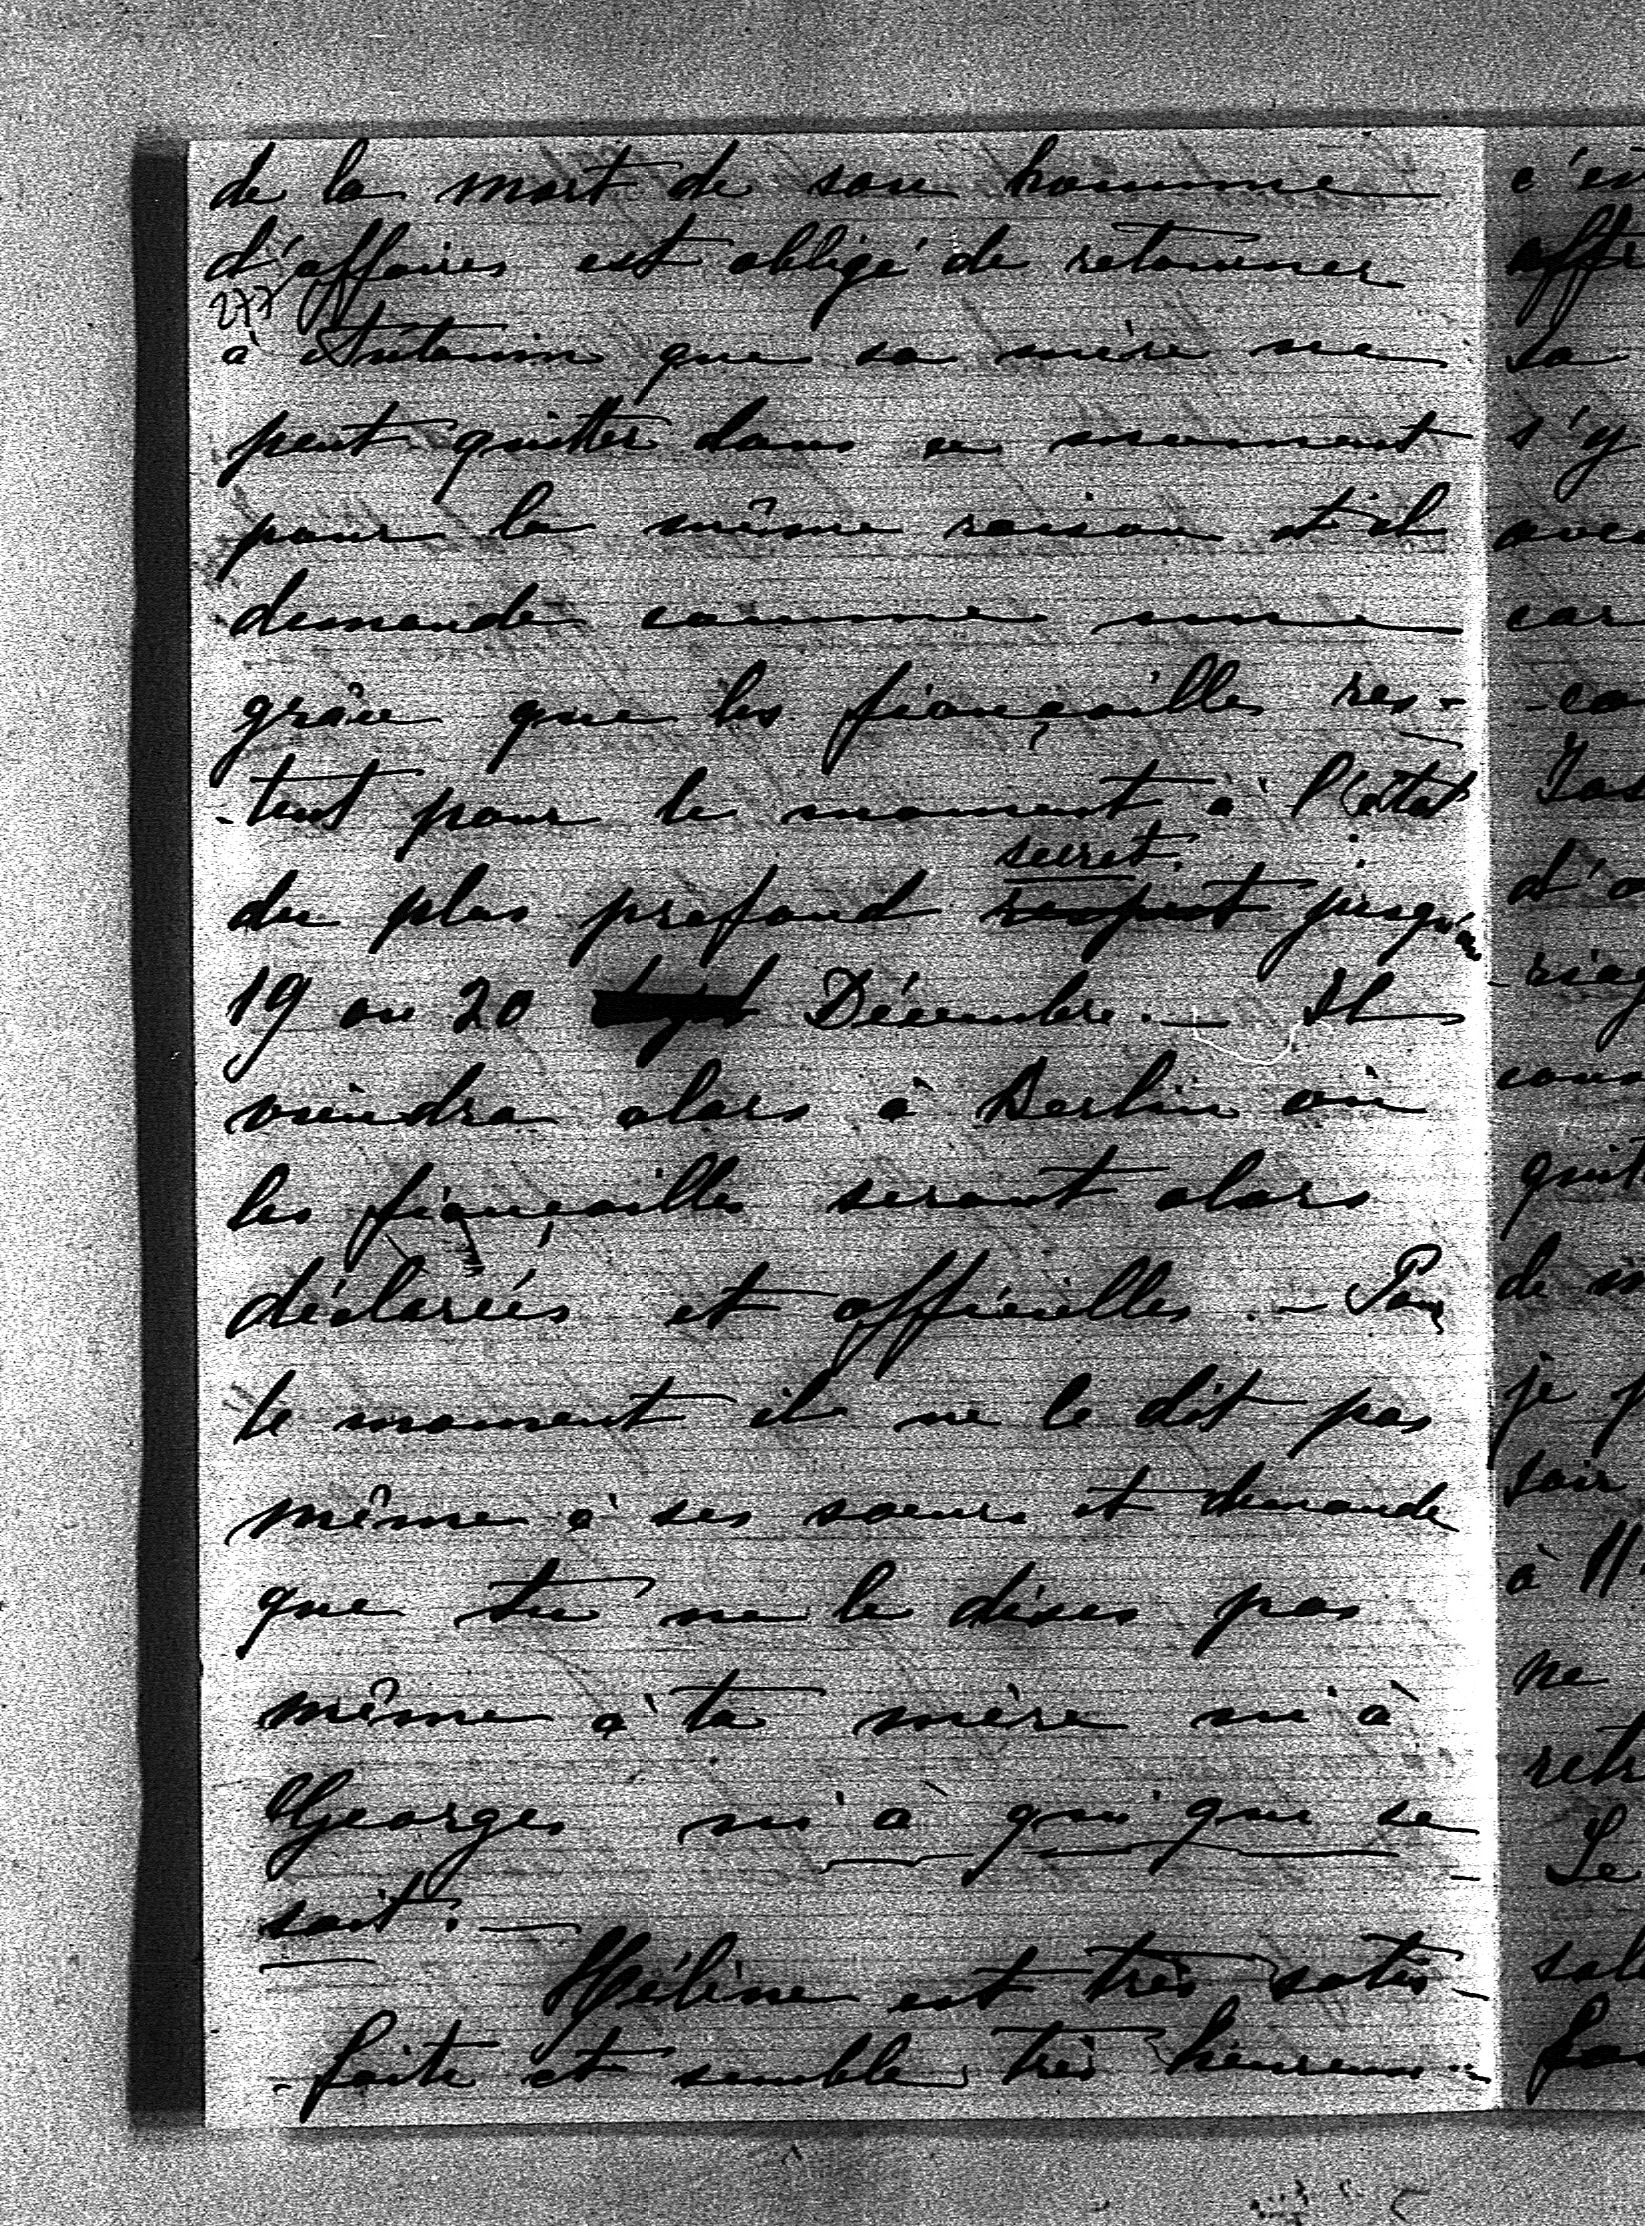 de la mort de son homme
d'affaires est obligé de retourner
277
à Antonin que sa mère ne
peut quitter dans ce moment
pour la même raison et il
demande comme une
grâce que les fiançailles res-
-tent pour le moment à l'état
secret
du plus profond respect jusqu'au
19 ou 20 Décembre. — Il
viendra alors à Berlin où
les fiançailles seront alors
déclarées et officielles. — Pour
le moment il ne le dit pas
même à ses soeurs et demande
que tu ne le dises pas
même à ta mère ni à
Georges ni à qui que ce
soit. —
Hélène est très satis-
-faite et semble très heureuse
c'es
affr
la
s'y
avec
car
-co
d'a
-riag
cons
quit
de m
je p
soir
à
ne
retr
Le